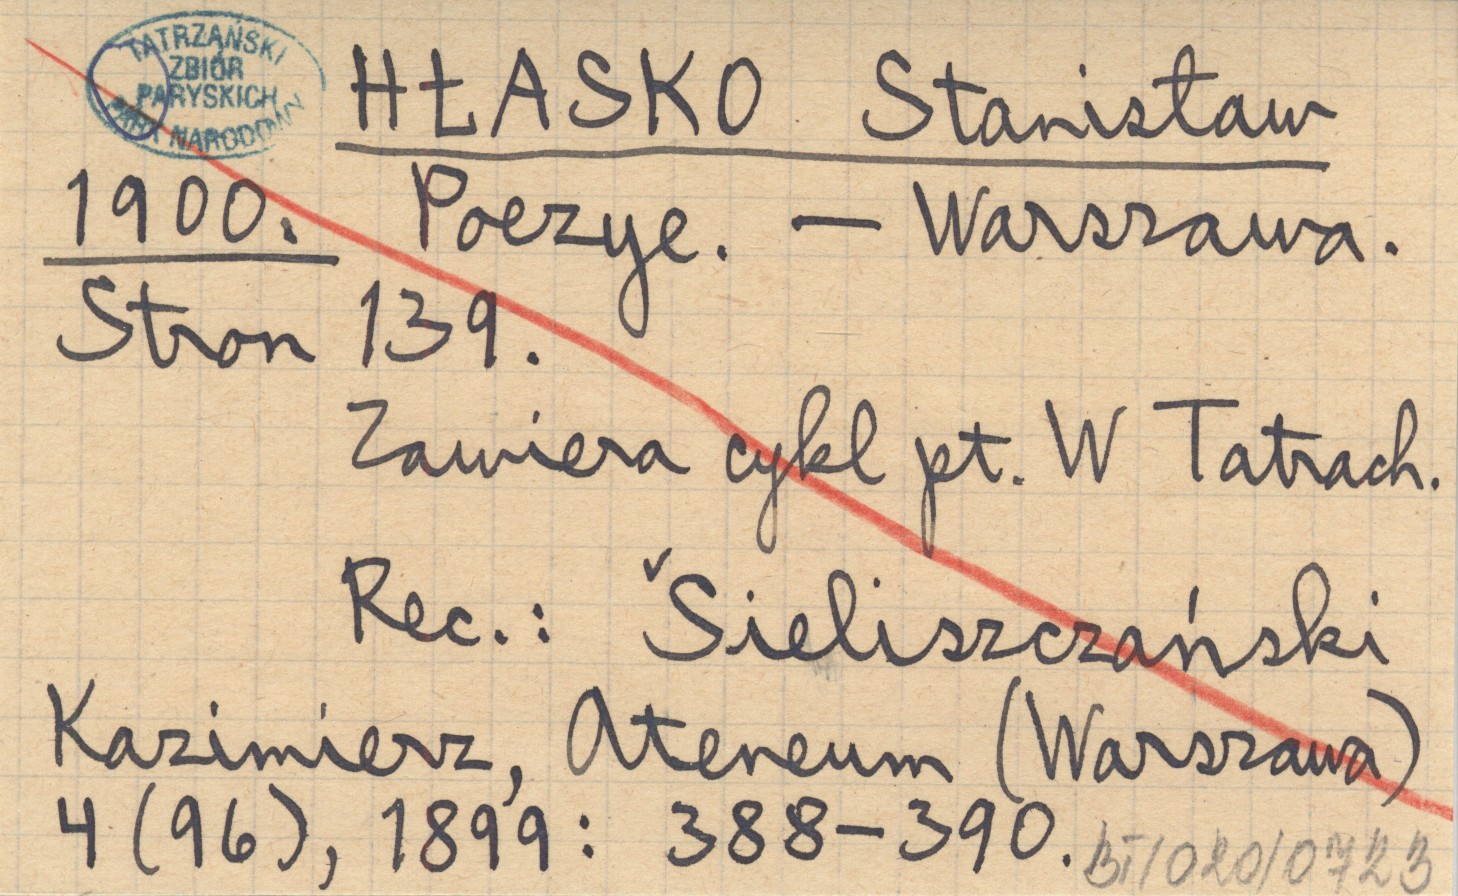 TATRZAŃSKI
ZBIÓR
PARYSKICH
PARK NARODOWY
HŁASKO Stanisław
1900. Poezye. — Warszawa.
Stron 139.
Zawiera cykl pt. W Tatrach.
Rec.: ˇSieliszczański
Kazimierz, Ateneum (Warszawa)
4 (96), 1899: 388–390.
BT/020/0723